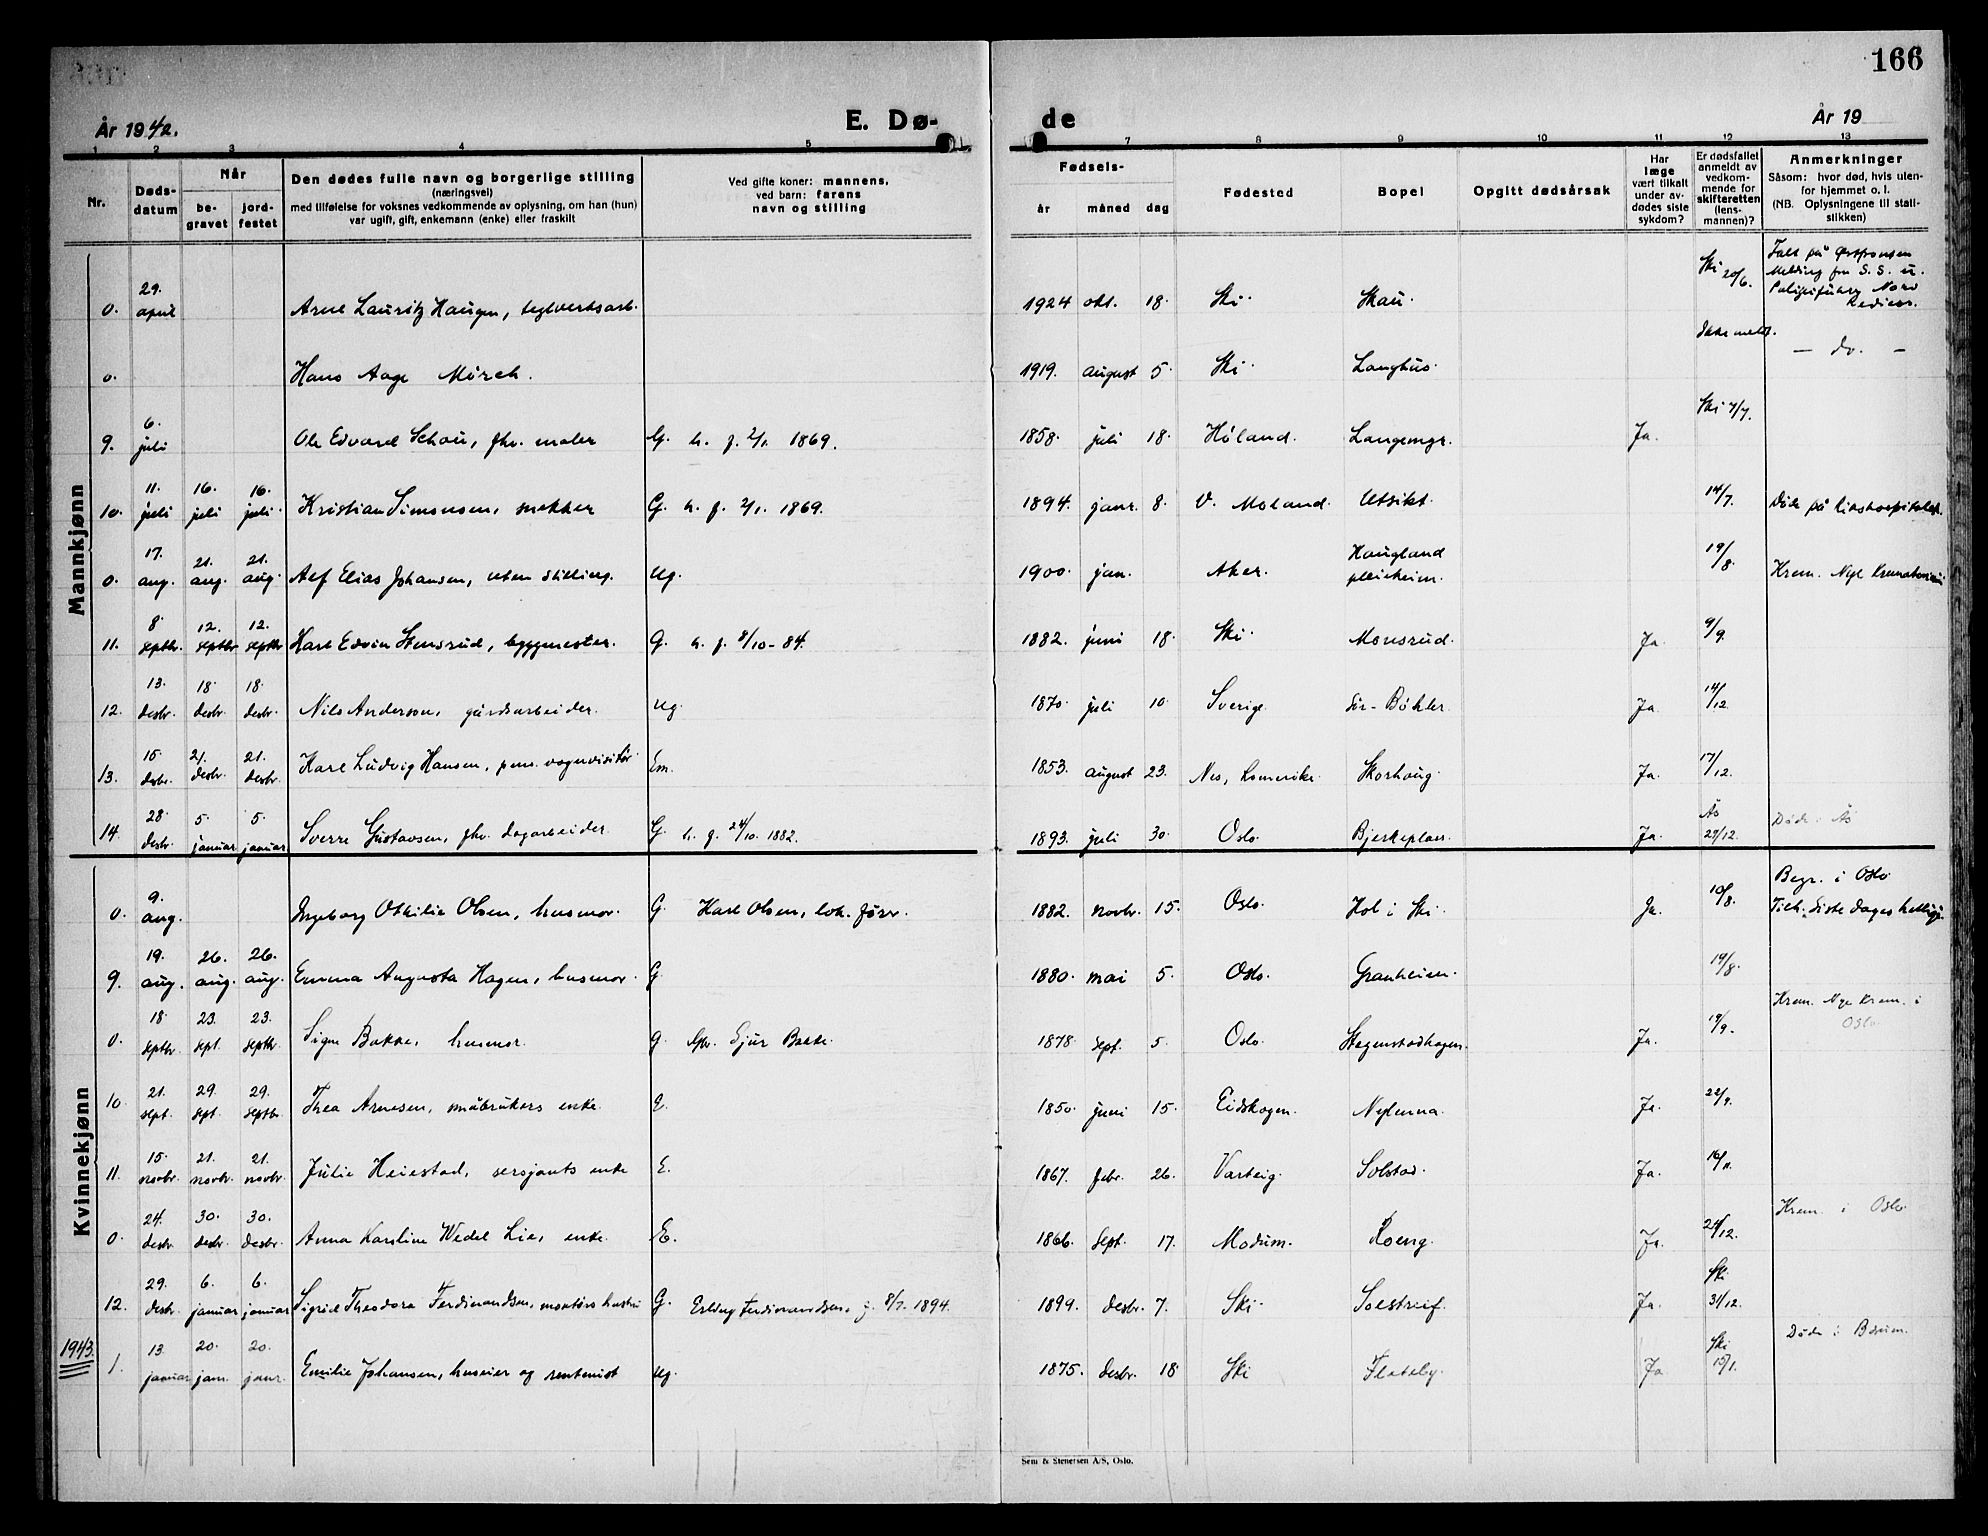 166
År 1942.
E. Dø-
de
År 19
1 2 3 4 5 7 8 9 10 11 12 13
Nr.
Døds-
datum
Når
be-
gravet
jord-
festet
Den dødes fulle navn og borgerlige stilling
(næringsvei)
med tilføielse for voksnes vedkommende av oplysning, om han (hun)
var ugift, gift, enkemann (enke) eller fraskilt
Ved gifte koner: mannens,
ved barn: farens
navn og stilling
Fødsels-
år måned dag
Fødested
Bopel
Opgitt dødsårsak
Har
læge
vært tilkalt
under av-
dødes siste
sykdom?
Er dødsfallet
anmeldt av
vedkom-
mende for
skifteretten
(lens-
mannen)?
Anmerkninger
Såsom: hvor død, hvis uten-
for hjemmet o. l.
(NB. Oplysningene til stati-
stikken)
Mannkjønn
0. 29. april Arne Lauritz Haugen, teglverksarb. 1924 okt. 18. Ski. Skau. Ski 20/6. Falt på Østfronten
Melding fra S. S. u.
Polizeiführer Nord
0. Hans Aage Mörch. 1919. august 5. Ski. Langhus. Ikke meldt. — do. —
9. 6. juli Ole Edvard Schau, fhv. maler G. h. f. 2/1. 1869. 1858. juli 18. Høland. Langemyr. Ja. Ski 7/7.
10. 11. juli 16. juli 16. juli. Kristian Simonsen, snekker G. h. f. 2/1. 1869. 1894. janr. 8. V. Moland. Utsikt. 14/7. Døde på Rikshospitalet.
0. 17. aug. 21. aug. 21. aug. Alf Elias Johansen, uten stilling. ug. 1900. jan. Aker. Haugland pleieheim. 19/8. Krem. Nye Krematorium
11. 8 septbr. 12. septbr 12. septbr Karl Edvin Stensrud, byggmester. G. h. f. 8/10-84. 1882. juni 18. Ski. Monsrud. Ja. 9/9.
12. 13. desbr. 18. desbr. 18. desbr. Nils Anderson, gårdsarbeider. ug. 1870. juli 10. Sverige. Sør-Bøhler. Ja. 14/12.
13. 15. desbr. 21. desbr. 21. desbr. Karl Ludvig Hansen, pens. vognvisitør Em. 1853. august 23. Nes, Romerike. Skorhaug. Ja. 17/12.
14. 28. desbr. 5. januar 5. januar Sverre Gustavsen, fhv. dagarbeider. G. h. f. 24/10. 1882. 1893. juli 30. Oslo. Bjerkeplass. Ja. Ås 29/12. Døde i Ås
Kvinnekjønn
0. 9. aug. Ingeborg Othilie Olsen, husmor. G. Karl Olsen, lok. fører. 1882. novbr. 15. Oslo. Hol i Ski. Ja. 10/8. Begr. i Oslo
Tilh. Siste dages hellige.
9. 19. aug. 26. aug. 26. aug. Emma Augusta Hagen, husmor. G. 1880. mai 5. Oslo. Granheim. 19/8.
0. 18 septbr. 23. sept. 23. septbr. Signe Bakke, husmor. G. Gbr. Sjur Bakke. 1878. sept. 5. Oslo. Stegenstadhagen. Ja. 19/9. Krem. Nye Krem. i
Oslo.
10. 21. sept. 29. sept. 29. septbr. Thea Arnesen, småbrukers enke E. 1850. juni 15. Eidskogen. Nylenna. Ja. 22/9.
11. 15. novbr. 21. novbr. 21. novbr. Julie Heiestad, sersjants enke E. 1867. febr. 26. Varteig. Solstad. Ja. 16/11.
0. 24. desbr. 30. desbr. 30. desbr. Anna Karoline Wedel Lie, enke E. 1866. sept. 17. Modum. Roeng. Ja. 24/12. Krem. i Oslo
12. 29. desbr. 6. januar 6. januar Sigrid Theodora Ferdinandsen, montørs hustru G. Erling Ferdinandsen. f. 8/7. 1894. 1899. desbr. 7. Ski. Solstreif. Ja. Ski 31/12.
1943. 1. 13. januar 20. jan. 20. janr. Emilie Johansen, huseier og rentenist ug. 1875. desbr. 18 Ski Flateby. Ja. Ski 15/1. Døde i Bærum.
Sem & Stenersen A/S, Oslo.